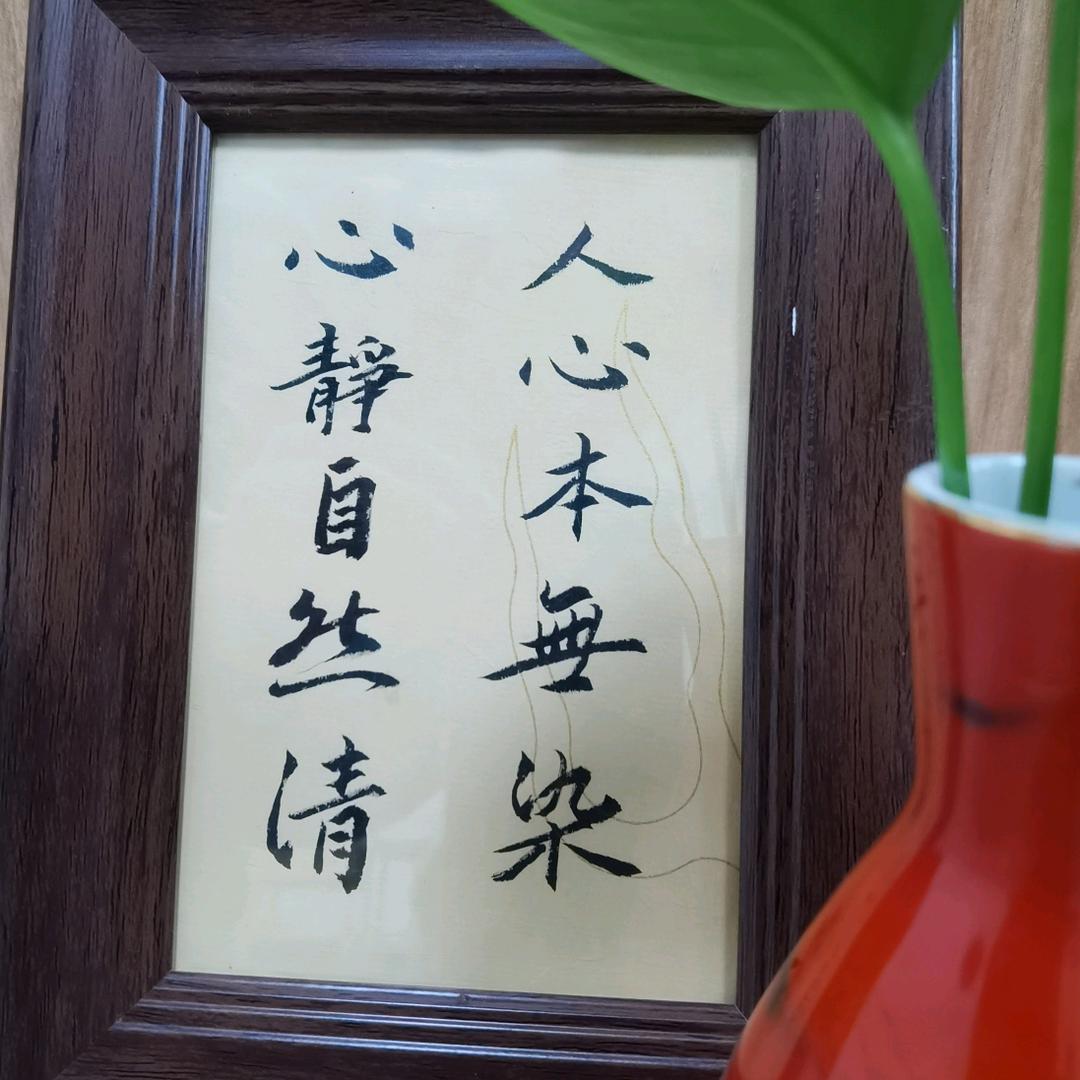 人心本無染
心靜自然清